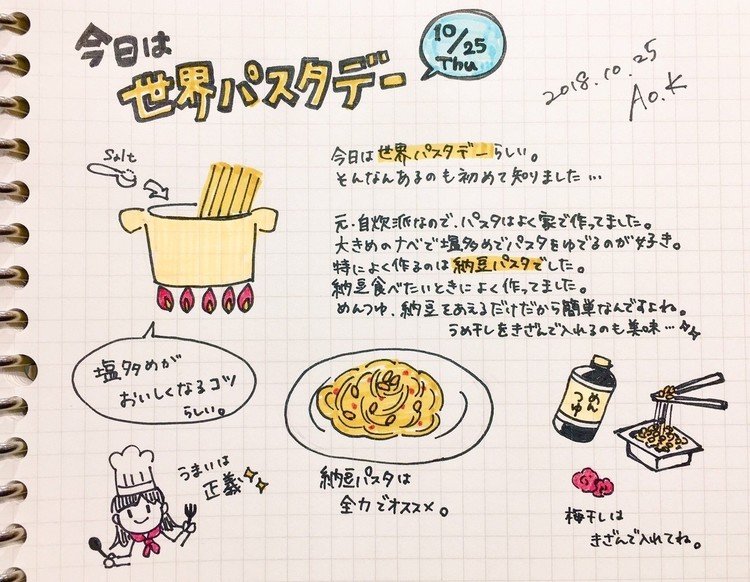 今日は
世界パスタデー
10/25
Thu
2018.10.25
Ao.K
Salt
今日は世界パスタデーらしい。
そんなんあるのも初めて知りました…
元・自炊派なので、パスタはよく家で作ってました。
大きめのナベで塩多めでパスタをゆでるのが好き。
特によく作るのは納豆パスタでした。
納豆食べたいときによく作ってました。
めんつゆ、納豆をあえるだけだから簡単なんですよね。
うめ干しをきざんで入れるのも美味…
塩多めが
おいしくなるコツ
らしい。
うまいは
正義
納豆パスタは
全力でオススメ。
めん
つゆ
梅干しは
きざんで入れてね。